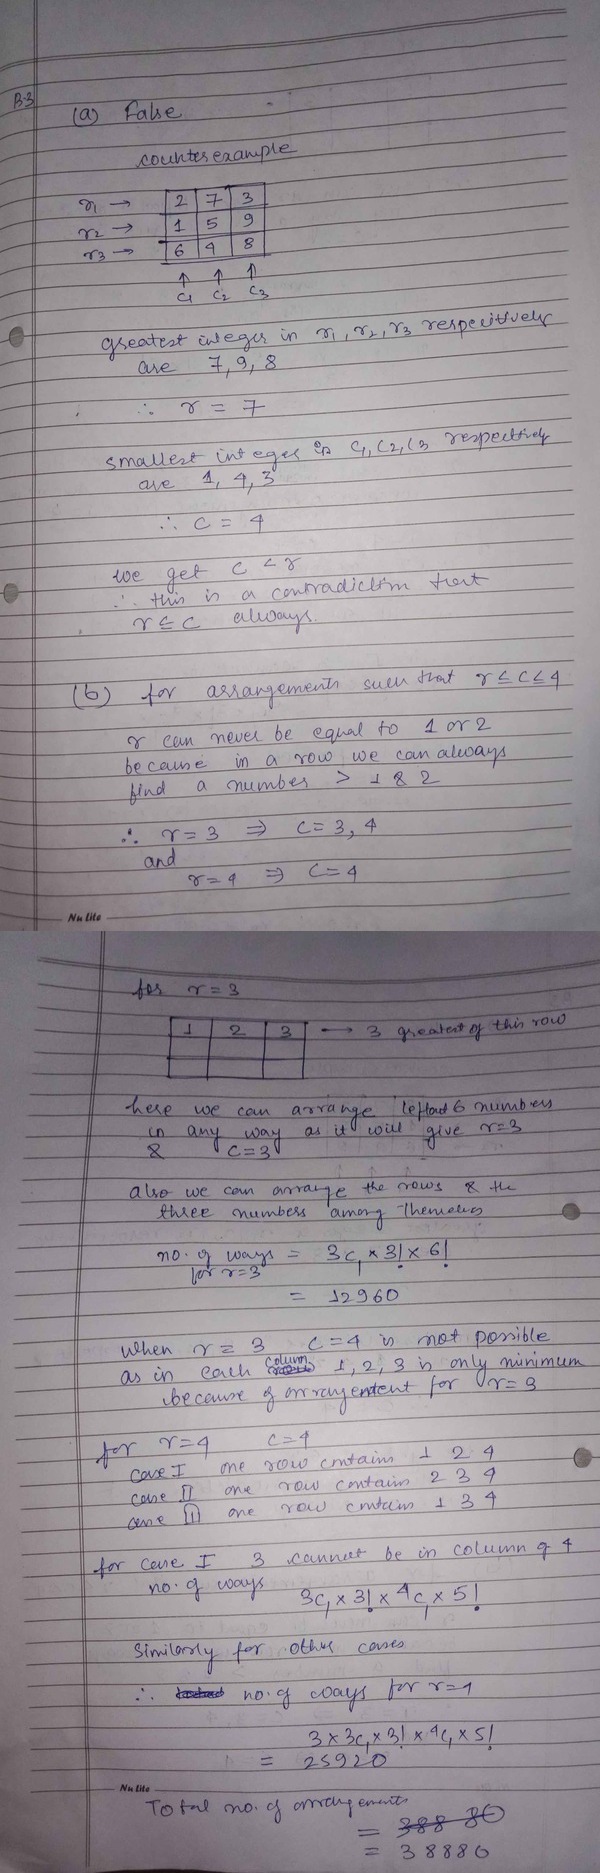 B-3
(a) False
counterexample
r1 → 2 7 3
r2 → 1 5 9
r3 → 6 4 8
↑ ↑ ↑
C1 C2 C3
greatest integer in r1, r2, r3 respectively
are 7, 9, 8
∴ r = 7
smallest integer in C1, C2, C3 respectively
are 1, 4, 3
∴ c = 4
we get c < r
∴ this is a contradiction that
r ≤ c always.
(b) for arrangements such that r ≤ c ≤ 4
r can never be equal to 1 or 2
because in a row we can always
find a number > 1 & 2
∴ r = 3 ⇒ c = 3, 4
and
r = 4 ⇒ c = 4
Nu lite
for r = 3
1 2 3 → 3 greatest of this row
here we can arrange leftout 6 numbers
in any way as it will give r=3
& c=3
also we can arrange the rows & the
three numbers among themselves
no. of ways = 3c1 × 3! × 6!
for r=3
= 12960
when r = 3 c=4 is not possible
as in each column 1, 2, 3 is only minimum
because of arrangement for r=3
for r=4 c=4
case I one row contains 1 2 4
case II one row contains 2 3 4
case III one row contains 1 3 4
for case I 3 cannot be in column of 4
no. of ways
3c1 × 3! × 4c1 × 5!
Similarly for other cases
∴ no. of ways for r=4
3 × 3c1 × 3! × 4c1 × 5!
= 25920
Nu lite
Total no. of arrangements
= 388 80
= 38880